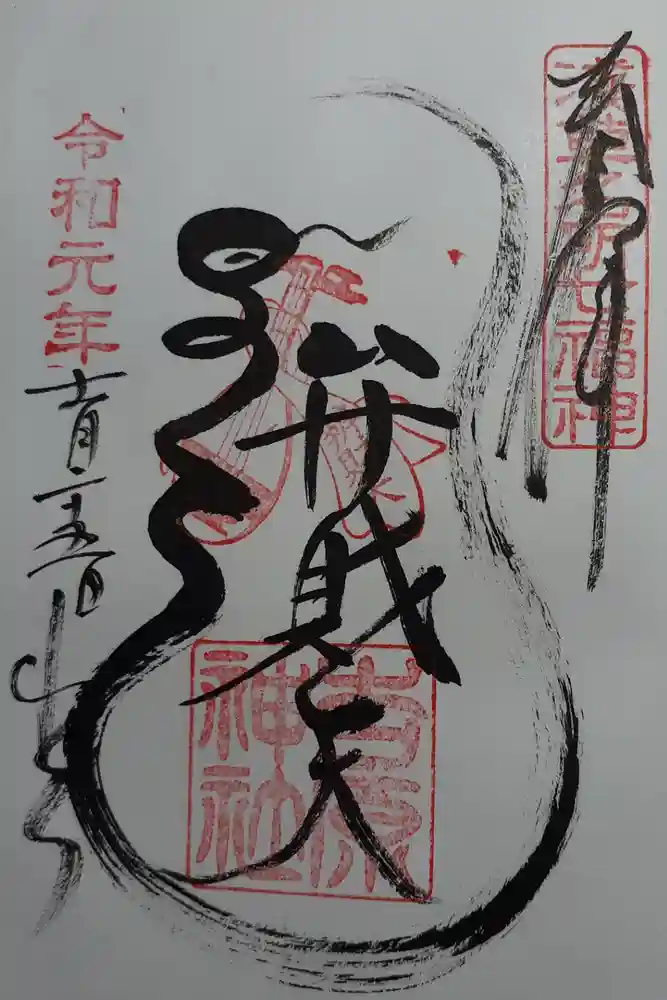 奉拝
浅草名所七福神
弁財天
吉原
神社
令和元年
十一月二十五日